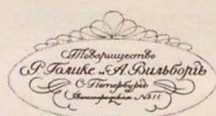 Товарищество
Р. Голике и А. Вильборгъ
С. Петербургъ
Звенигородская №11